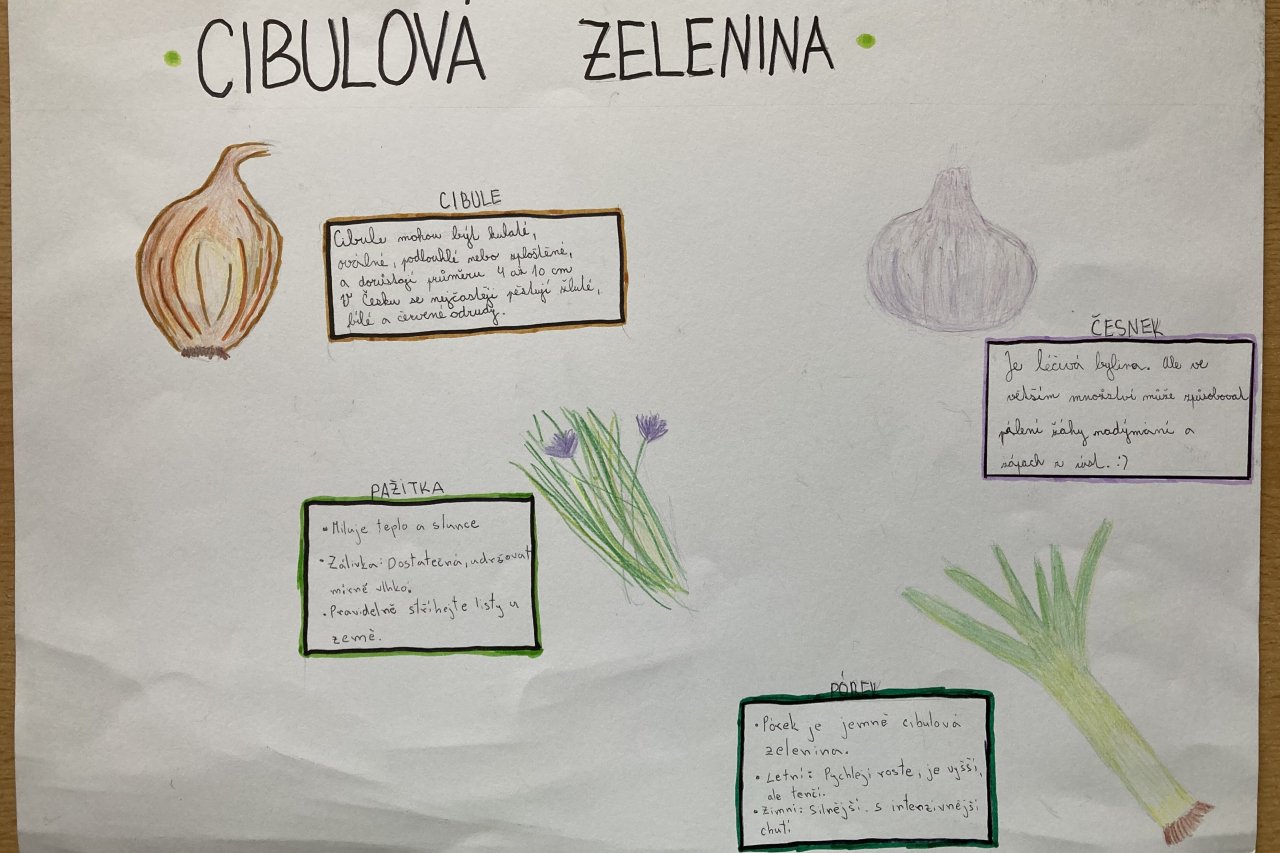 CIBULOVÁ ZELENINA
CIBULE
Cibule mohou být kulaté,
oválné, podlouhlé nebo zploštěné,
a dorůstají průměru 4 až 10 cm
V Česku se nejčastěji pěstují žluté,
bílé a červené odrudy.
ČESNEK
Je léčivá bylina. Ale ve
větším množství může způsobovat
pálení žáhy nadýmání a
zápach z úst. :)
PAŽITKA
• Miluje teplo a slunce
• Zálivka: Dostatečná, udržovat
mírně vlhko.
• Pravidelně stříhejte listy u
země.
PÓREK
• Pórek je jemně cibulová
zelenina.
• Letní: Rychleji roste, je vyšší,
ale tenčí.
• Zimní: Silnější s intenzivnější
chutí